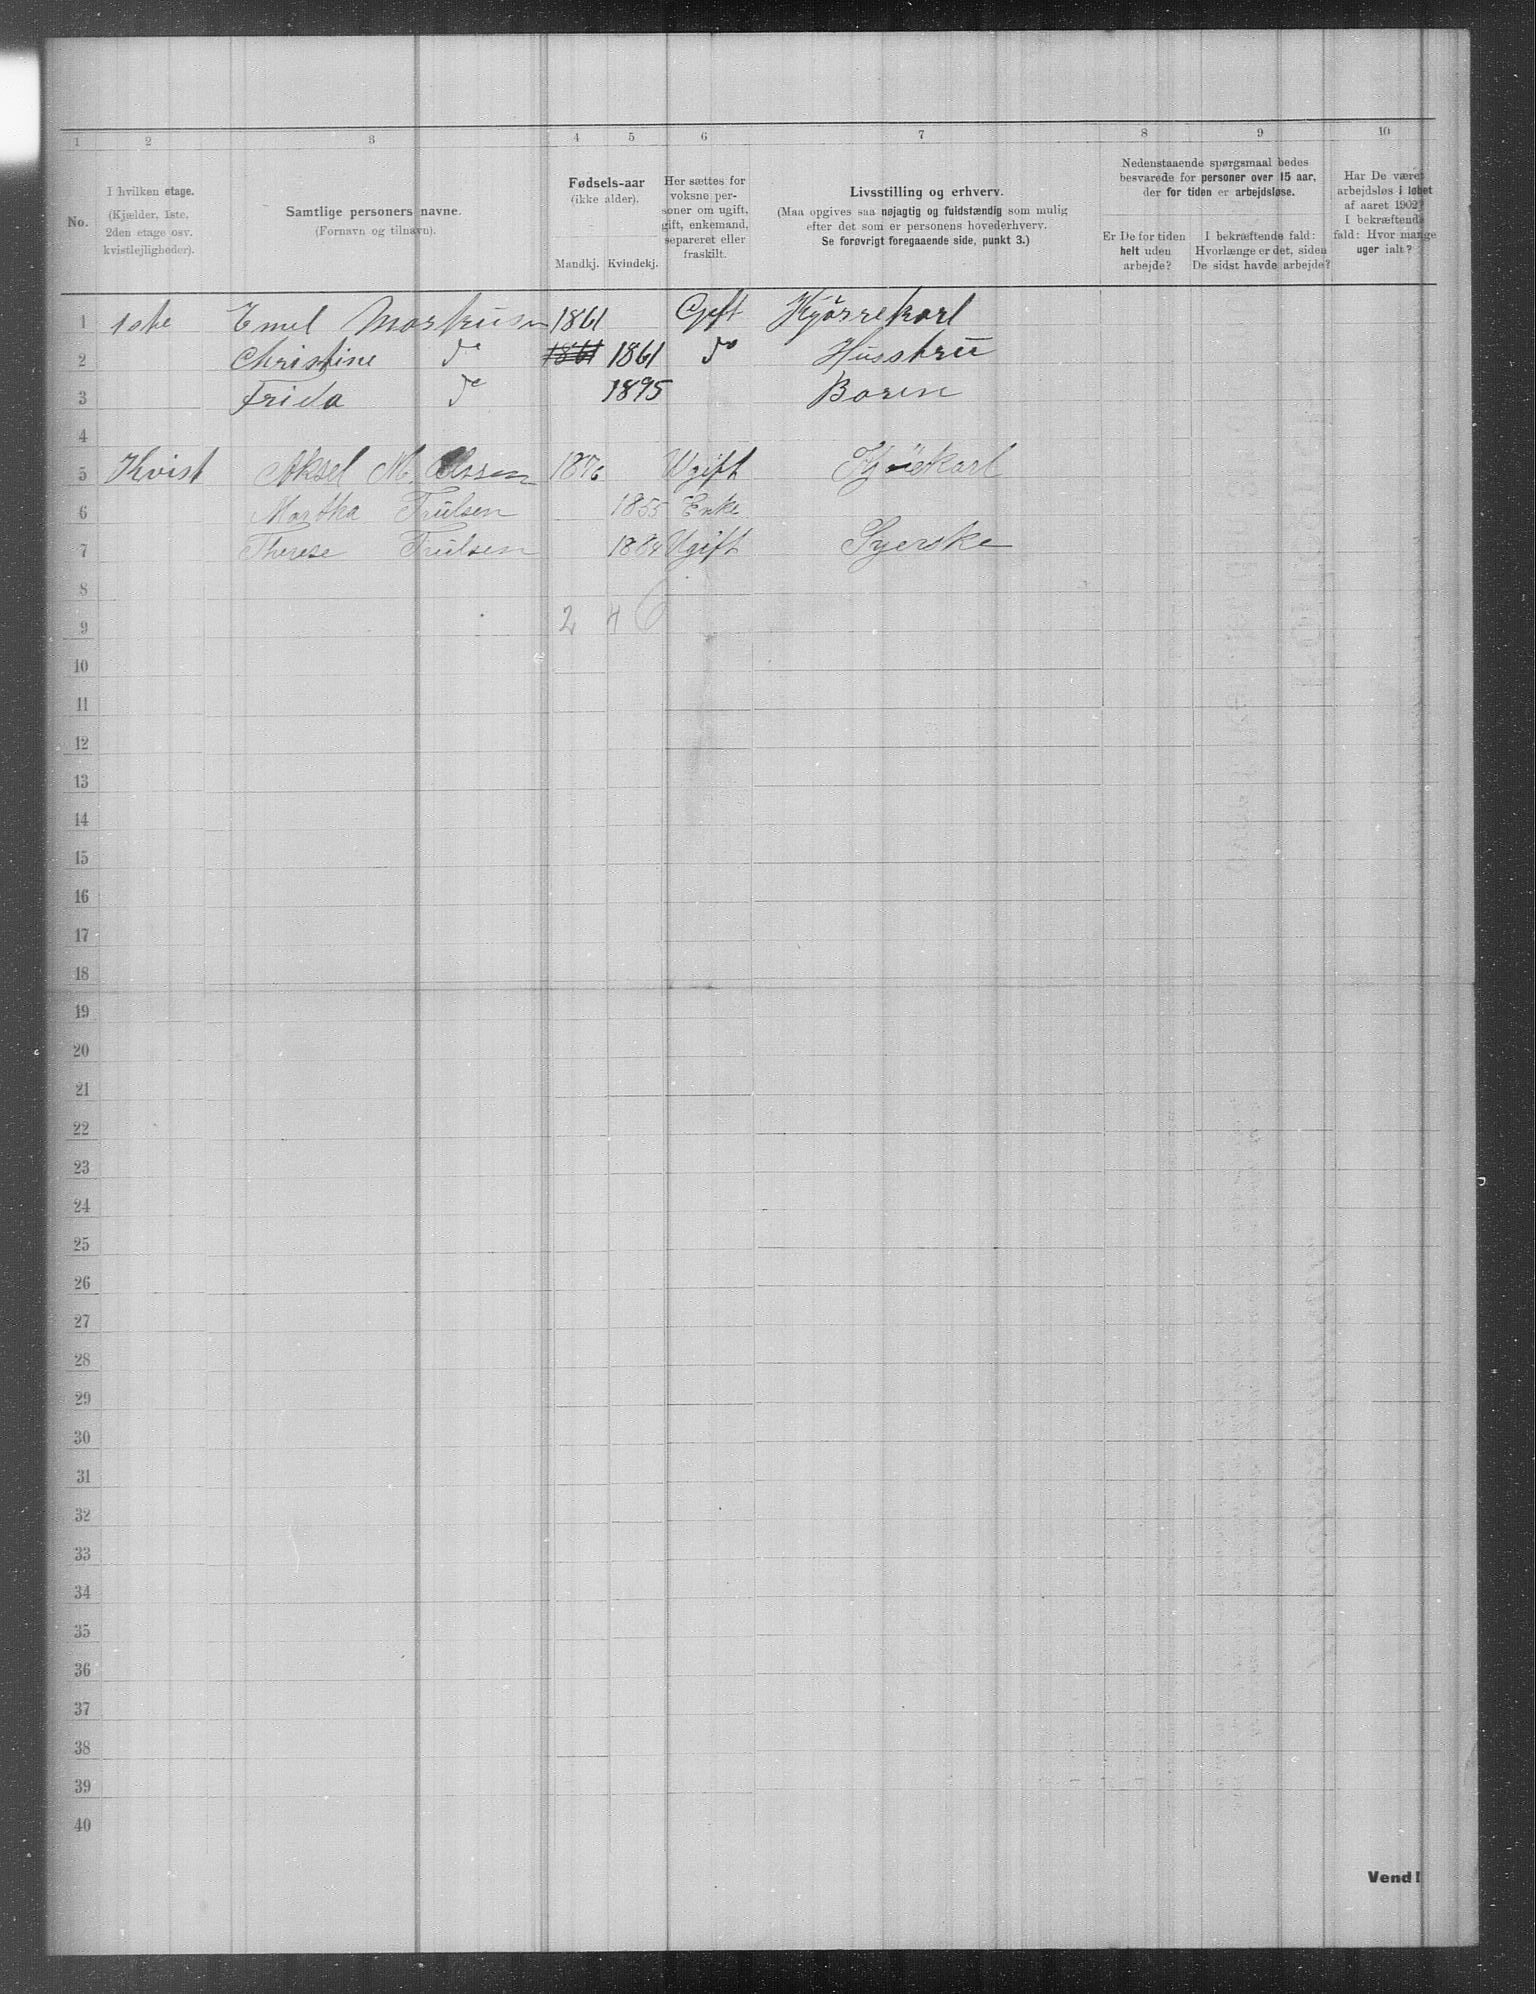 1 2 3 4 5 6 7 8 9 10
No.
I hvilken etage.
(Kjælder, 1ste,
2den etage osv.
kvistlejligheder).
Samtlige personers navne.
(Fornavn og tilnavn).
Fødsels-aar
(ikke alder).
Mandkj. Kvindekj.
Her sættes for
voksne per-
soner om ugift,
gift, enkemand,
separeret eller
fraskilt.
Livsstilling og erhverv.
(Maa opgives saa nøjagtig og fuldstændig som mulig
efter det som er personens hovederhverv.
Se forøvrigt foregaaende side, punkt 3.)
Nedenstaaende spørgsmaal bedes
besvarede for personer over 15 aar,
der for tiden er arbejdsløse.
Er De for tiden
helt uden
arbejde?
I bekræftende fald:
Hvorlænge er det, siden
De sidst havde arbejde?
Har De været
arbejdsløs i løbet
af aaret 1902?
I bekræftende
fald: Hvor mange
uger ialt?
1 1ste Emel Markusen 1861 Gift Kjørrekarl
2 Christine do 1861 1861 do Husstru
3 Frida do 1895 Baren
4
5 Kvist Aksel M. Olssen 1876 Ugift
6 Martha Trulsen 1855 Enke
7 Therese Trulsen 1884 Ugift Syerske
8
9 2 4 6
10
11
12
13
14
15
16
17
18
19
20
21
22
23
24
25
26
27
28
29
30
31
32
33
34
35
36
37
38
39
40
Vend!